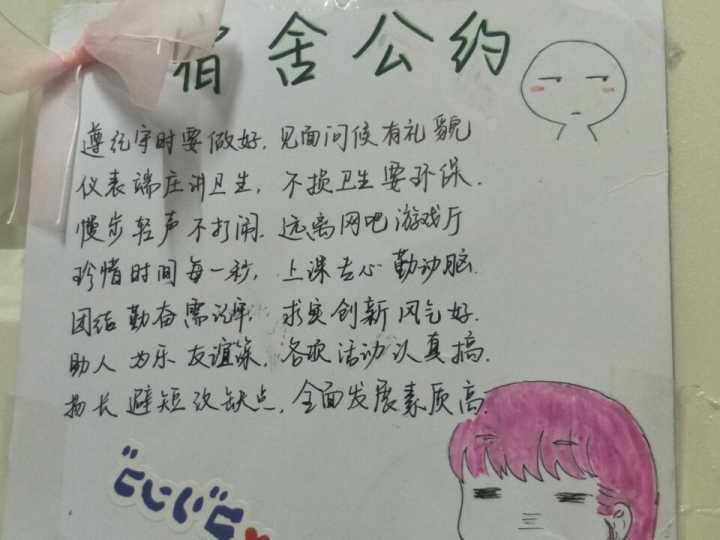 宿舍公约
遵纪守时要做好，见面问候有礼貌
仪表端庄讲卫生，不损卫生要环保.
慢步轻声不打闹.远离网吧游戏厅
珍惜时间每一秒，上课专心勤动脑.
团结勤奋需记牢，求实创新风气好.
助人为乐友谊深，各项活动认真搞.
扬长避短改缺点，全面发展素质高.